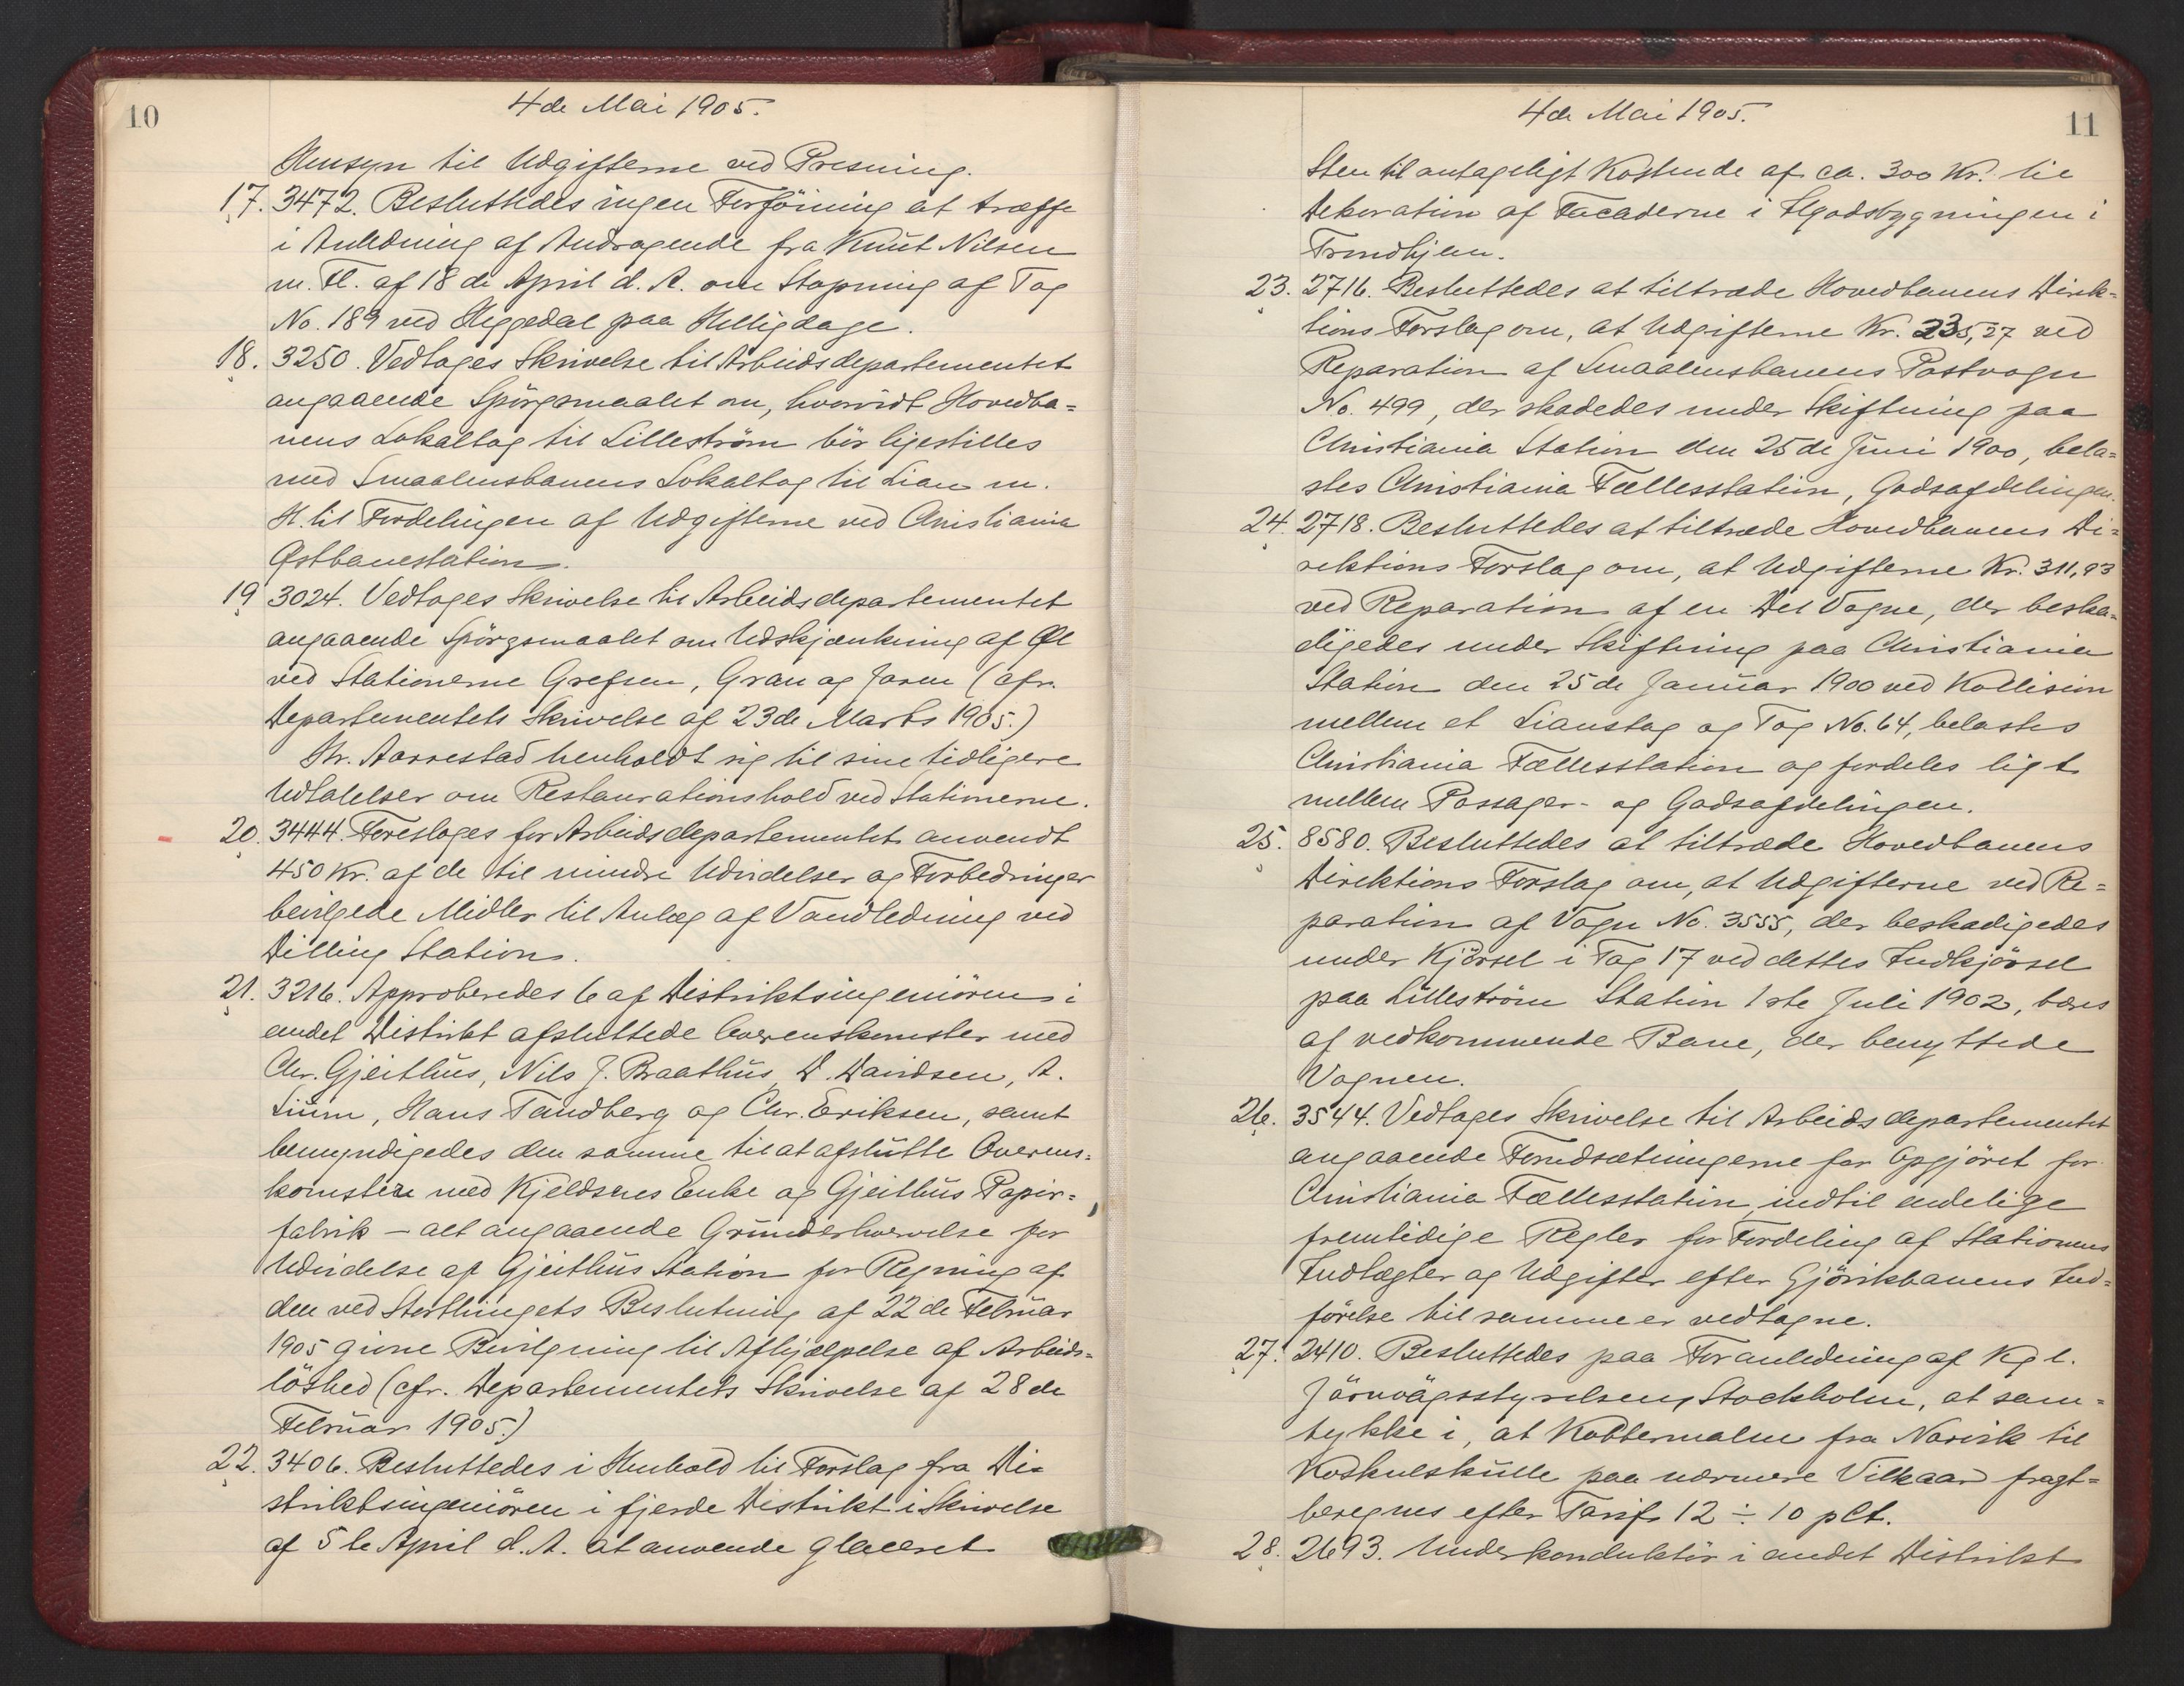 10
4de Mai 1905.
Hensyn til Udgifterne ved Presning.
17. 3472. Besluttedes ingen Forföining at træffe
i Anledning af Andragende fra Knut Nilsen
m. Fl. af 18de April d. A. om Stopning af Tog
No. 189 ved Heggedal paa Helligdage.
18. 3250. Vedtoges Skrivelse til Arbeidsdepartementet
angaaende Spörgsmaalet om, hvorvidt Hovedba=
nens Lokaltog til Lilleström bör ligestilles
med Smaalensbanens Lokaltog til Lian m.
H. til Fordelingen af Udgifterne ved Christiania
Østbanestation.
19 3024. Vedtoges Skrivelse til Arbeidsdepartementet
angaaende Spörgsmaalet om Udskjænkning af Øl
ved Stationerne Grefsen, Gran og Jaren (cfr.
Departementets Skrivelse af 23de Marts 1905.)
Hr. Aarrestad henholdt sig til sine tidligere
Udtalelser om Restaurationshold ved Stationerne.
20. 3444. Foresloges for Arbeidsdepartementet anvendt
450 Kr. af de til mindre Udvidelser og Forbedringer
bevilgede Midler til Anlæg af Vandledning ved
Dilling Station.
21. 3216. Approberedes 6 af Distriktsingeniören i
andet Distrikt afsluttede Overenskomster med
Chr. Gjeithus, Nils J. Braathus, D. Davidsen, A.
Lium, Hans Tandberg og Chr. Eriksen, samt
bemyndigedes den samme til at afslutte Overens=
komster med Kjeldsens Enke og Gjeithus Papir=
fabrik – alt angaaende Grunderhvervelse for
Udvidelse af Gjeithus Station for Regning af
den ved Storthingets Beslutning af 22de Februar
1905 givne Bevilgning til Afhjælpelse af Arbeids=
löshed (cfr. Departementets Skrivelse af 28de
Februar 1905.)
22. 3406. Besluttedes i Henhold til Forslag fra Di=
striktsingeniören i fjerde Distrikt i Skrivelse
af 5te April d. A. at anvende glaceret
4de Mai 1905.
11
Sten til antageligt Kostende af ca. 300 Kr. til
Dekoration af Facaderne i Ilgodsbygningen i
Trondhjem.
23. 2716. Besluttedes at tiltræde Hovedbanens Direk=
tions Forslag om, at Udgifterne Kr. 235,27 ved
Reparation af Smaalensbanens Postvogn
No. 499, der skadedes under Skiftning paa
Christiania Station den 25de Juni 1900, bela=
stes Christiania Fællesstation, Godsafdelingen.
24. 2718. Besluttedes at tiltræde Hovedbanens Di=
rektions Forslag om, at Udgifterne Kr. 311,93
ved Reparation af en Del Vogne, der beska=
digedes under Skiftning paa Christiania
Station den 25de Januar 1900 ved Kollision
mellem et Lianstog og Tog No. 64, belastes
Christiania Fællesstation og fordeles ligt
mellem Passager- og Godsafdelingen.
25. 8580. Besluttedes at tiltræde Hovedbanens
Direktions Forslag om, at Udgifterne ved Re=
paration af Vogn No. 3555, der beskadigedes
under Kjörsel i Tog 17 ved dettes Indkjörsel
paa Lilleström Station 1ste Juli 1902, bæres
af vedkommende Bane, der benyttede
Vognen.
26. 3544. Vedtoges Skrivelse til Arbeidsdepartementet
angaaende Forudsætningerne for Opgjöret for
Christiania Fællesstation, indtil endelige
fremtidige Regler for Fordeling af Stationens
Indtægter og Udgifter efter Gjövikbanens Ind=
förelse til samme er vedtagne.
27. 2410. Besluttedes paa Foranledning af Kgl.
Järnvägsstyrelsen, Stockholm, at sam=
tykke i, at Kobbermalm fra Narvik til
Koskulskulle paa nærmere Vilkaar fragt=
beregnes efter Tarif 12 ÷ 10 pCt.
28. 2693. Underkonduktör i andet Distrikt